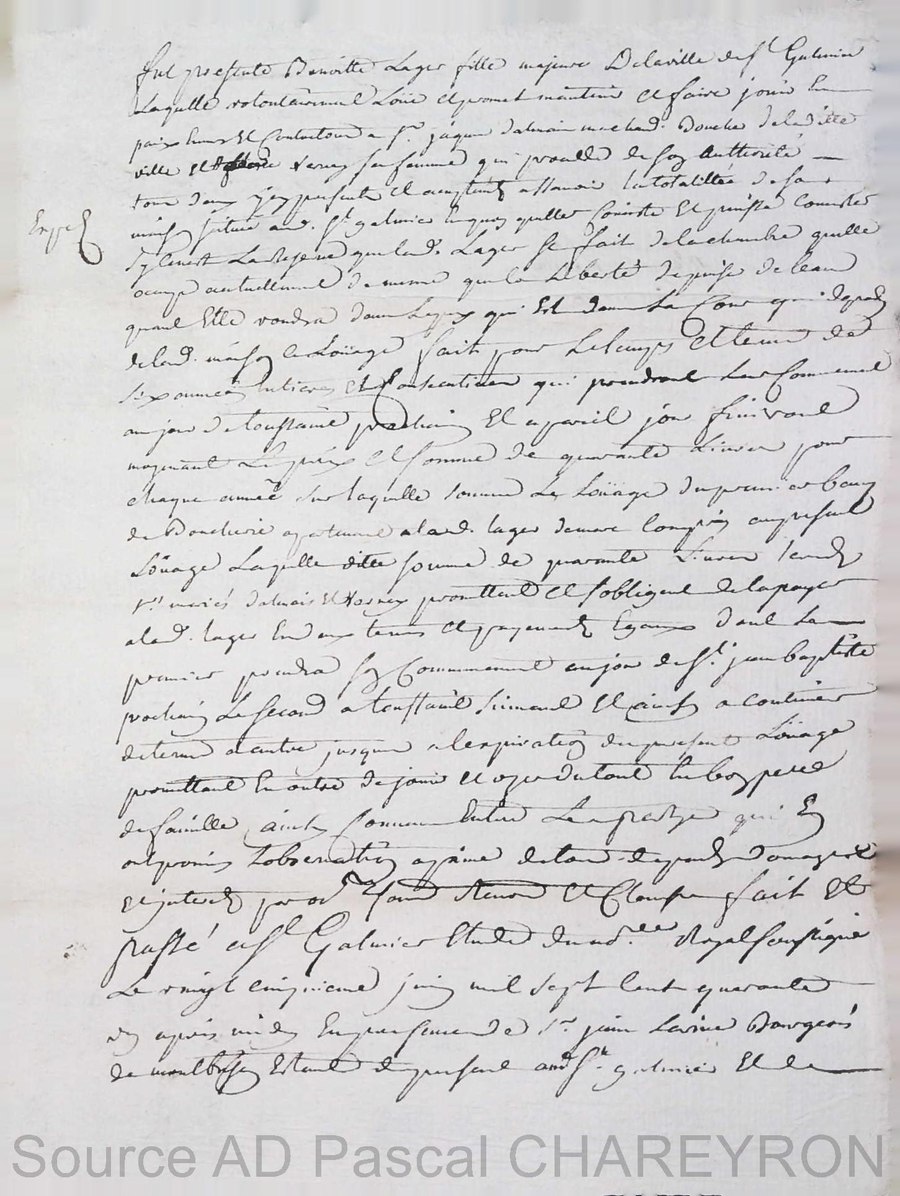 Fut presente Benoitte Lager fille majeure Delaville de St Galmier
Laquelle volontairement Loüe et promet maintenir et faire jouir En
paix Envers et Contre tous a sr. jaques dalmais marchand. Boucher de laditte
ville et Vernay sa femme qui procedde de son Authorité
tous deux icy presents et acceptants assavoir la totalitée de sa
maison située aud. St galmier en quoy quelle Consiste Et puisse Consister
Expeé
Sy ce n'est La Reserve que lad. Lager se fait de la chambre quelle
occupe actuellement de meme que la Liberté de prise de leau
quand Elle voudra dans Le puy qui Est dans La Cour qui depend
de lad. maison ce Loüage fait pour Le temps et terme de
Six années entieres et Consecutives qui prendront Leur Commencement
au jour de toussaint prochain Et a pareil jour finiront
moyenant Le prix et somme de quarante Livres pour
chaque année sur laquelle somme Le Loüage du premier banc
de Boucherie apartenant a lad. lager demeure Compris au present
Loüage Laquelle ditte somme de quarante Livres lesds
mariés dalmais et Vernay promettent et sobligent de la payer
a lad. lager En deux termes et payements Egaux dont Le
premier prendra son Commencement au jour de St. jean baptiste
prochain Le Second a toussaint suivant Et ainsy a continuer
de terme a autre jusques a lexpiration du present Loüage
promettant En outre de jouir et user du tout En bon pere
de famille ainsy Convenu Entre Les parties qui En
ont promis Lobservation a peine de tous depends domages
Et interets par Foy Renon. et Clauses fait Et
passé a St Galmier Etude du no.re Royal soussigné
Le vingt cinquieme juin mil sept cent quarante
apres midy En presence de sr. jean Lavine Bourgeois
de montbrison Estant de present aud St. galmier Et de
Source AD Pascal CHAREYRON